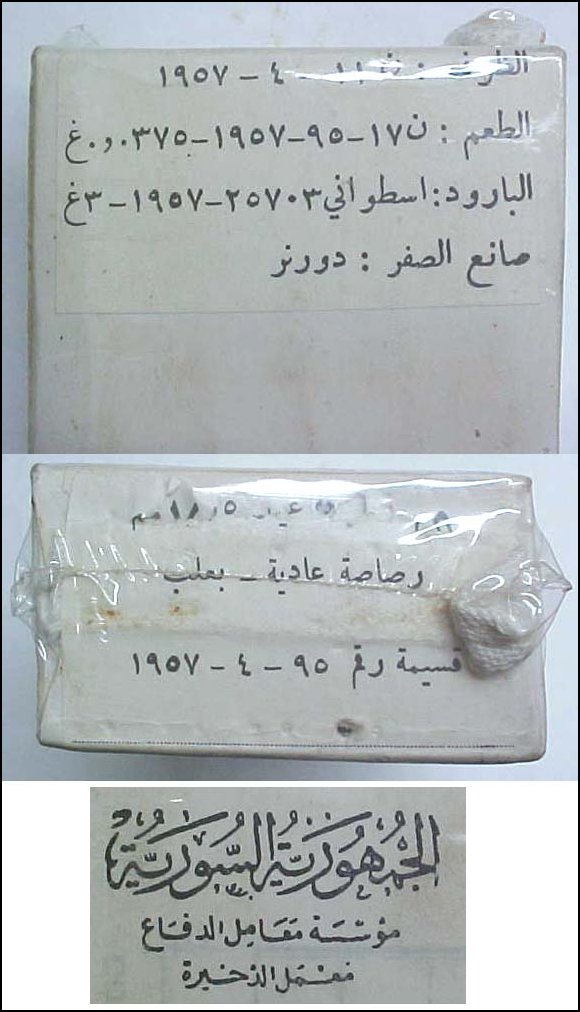 ٤ - ١٩٥٧
الطعم : ن١٧-٩٥-١٩٥٧-٠٫٠٣٧٥غ
البارود: اسطواني ٢٥٧٠٣-١٩٥٧-٣غ
صانع الصفر : دورنر
مم
رصاصة عادية - بعلب
قسيمة رقم ٩٥ - ٤ - ١٩٥٧
الجُمهُورِيَّة السُّورِيَّة
مؤسَّسَة مَعَامِل الدفَاع
مَعْمَل الذخِيرة